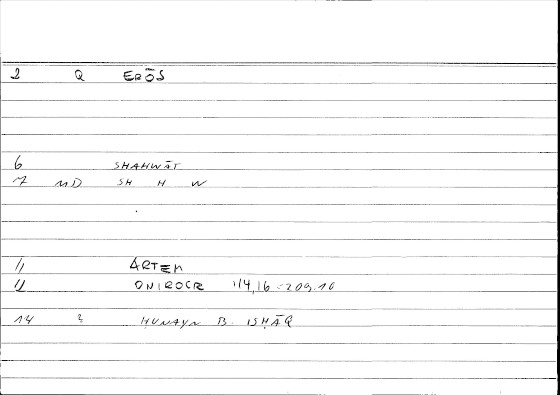 2 Q ERŌS
6 SHAHWĀT
7 MD SH H W
11 ARTEM
12 ONIROCR 114,16 = 209.10
14 ? ḤUNAYN B. ISḤĀQ